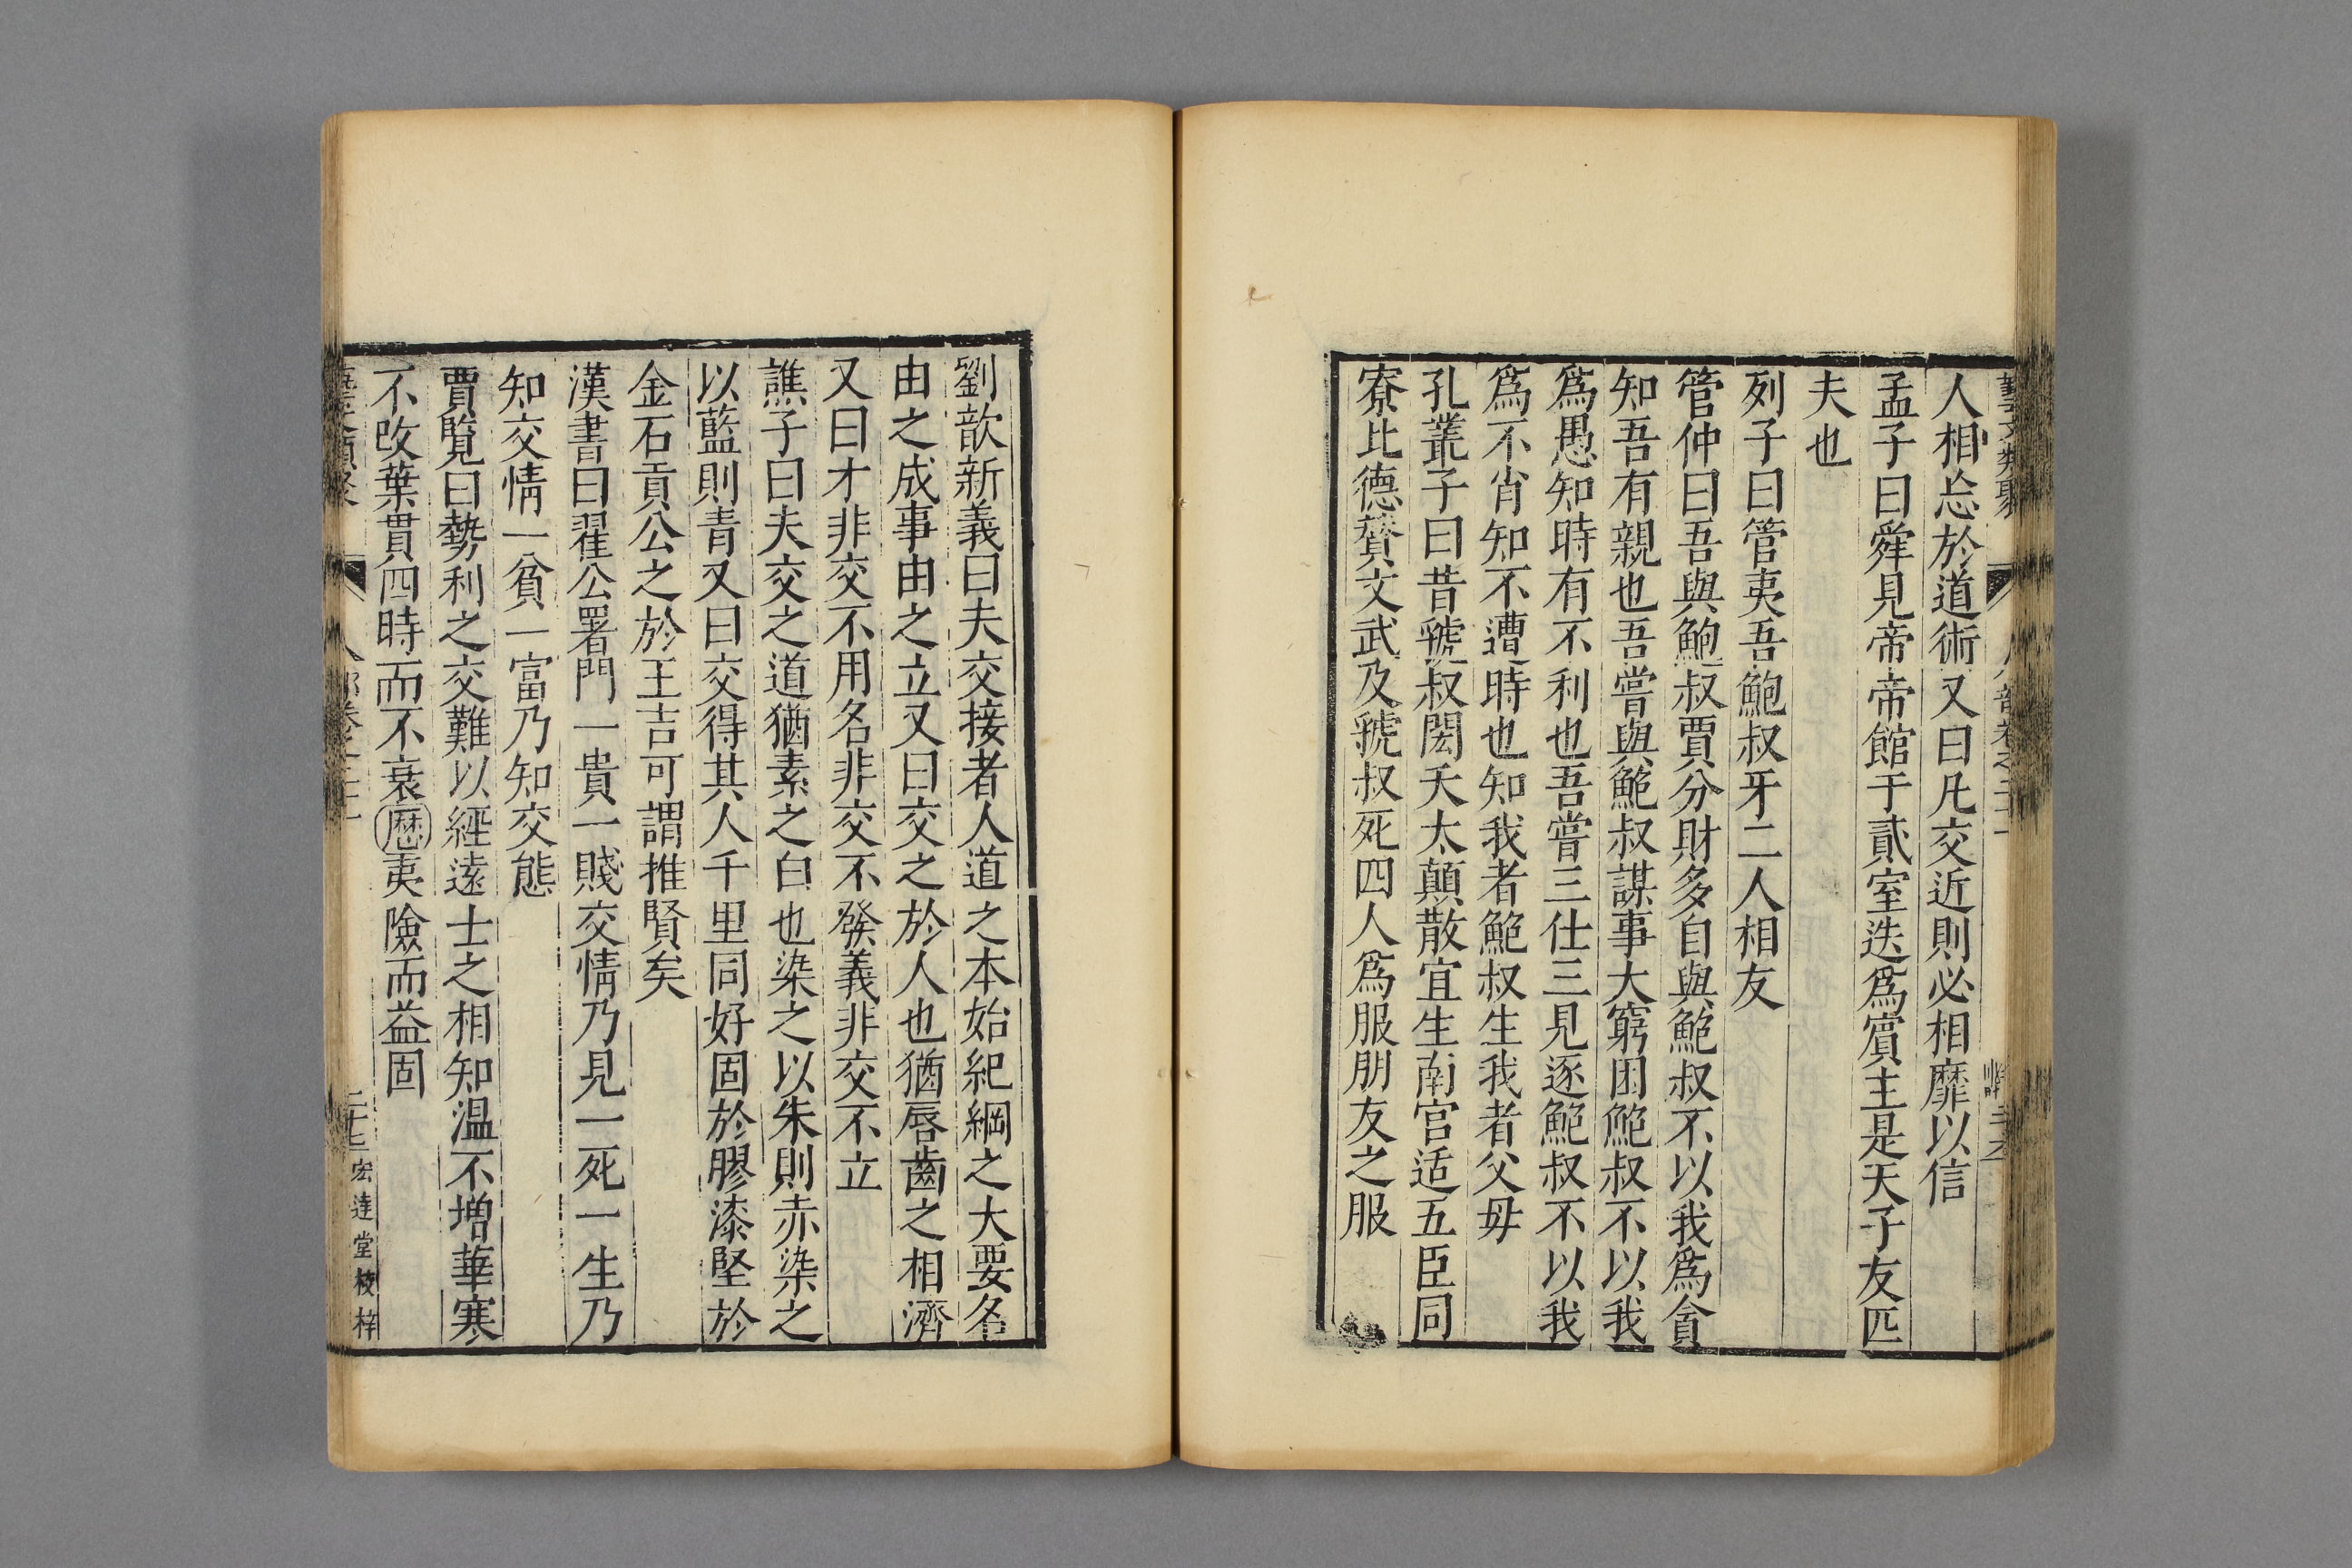 藝文類聚
人相忘於道術又曰凡交近則必相靡以信
孟子曰舜見帝帝館于貳室迭爲賓主是天子友匹
夫也
列子曰管夷吾鮑叔牙二人相友
管仲曰吾與鮑叔賈分財多自與鮑叔不以我爲貪
知吾有親也吾嘗與鮑叔謀事大窮困鮑叔不以我
爲愚知時有不利也吾嘗三仕三見逐鮑叔不以我
爲不肖知不遭時也知我者鮑叔生我者父母
孔叢子曰昔虢叔閎夭太顛散宜生南宫适五臣同
寮比德贊文武及虢叔死四人爲服朋友之服
劉歆新義曰夫交接者人道之本始紀綱之大要名
由之成事由之立又曰交之於人也猶唇齒之相濟
又曰才非交不用名非交不發義非交不立
譙子曰夫交之道猶素之白也染之以朱則赤染之
以藍則青又曰交得其人千里同好固於膠漆堅於
金石貢公之於王吉可謂推賢矣
漢書曰翟公署門一貴一賤交情乃見一死一生乃
知交情一貧一富乃知交態
賈覽曰勢利之交難以經遠士之相知温不增華寒
不改葉貫四時而不衰歷夷險而益固
宏達堂校梓